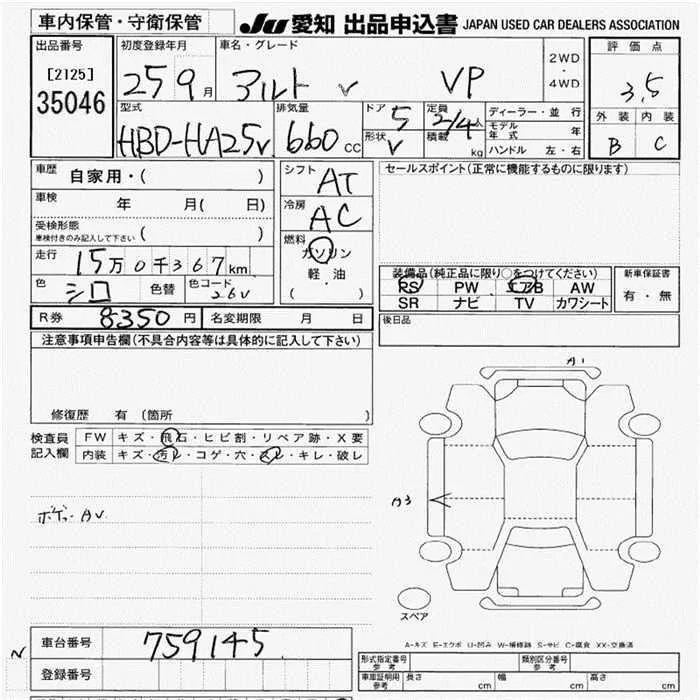 車内保管・守衛保管
JU 愛知 出品申込書 JAPAN USED CAR DEALERS ASSOCIATION
出品番号
[2125]
35046
初度登録年月
25 9月
車名・グレード
アルト V VP
2WD
・
4WD
評価点
3.5
外装 内装
B C
型式
HBD-HA25V
排気量
660 CC
ドア 5
形状 V
定員 2/4人
積載 kg
ディーラー・並行
モデル年式 年
ハンドル 左・右
車歴 自家用・( )
車検 年 月( 日)
受検形態
車検付きのみ記入して下さい ( )
走行 15万0千367km
色 シロ 色替 色コード 26V
シフト AT
冷房 AC
燃料
ガソリン
軽・油
( )
セールスポイント(正常に機能するものに限ります)
装備品(純正品に限り○をつけてください)
PS PW エアB AW
SR ナビ TV カワシート
新車保証書
有・無
R券 8350円 名変期限 月 日
後日品
注意事項申告欄(不具合内容等は具体的に記入して下さい)
修復歴 有 〔箇所 〕
検査員
記入欄
FW キズ・飛石・ヒビ割・リペア跡・X要
内装 キズ・汚レ・コゲ・穴・スレ・キレ・破レ
A1
A3
スペア
A-キズ E-エクボ U-凹み W-補修跡 S-サビ C-腐食 XX-交換済
N
車台番号 759145
登録番号
形式指定番号
参考
類別区分番号
参考
車庫証明用
参考
長さ cm 幅 cm 高さ cm